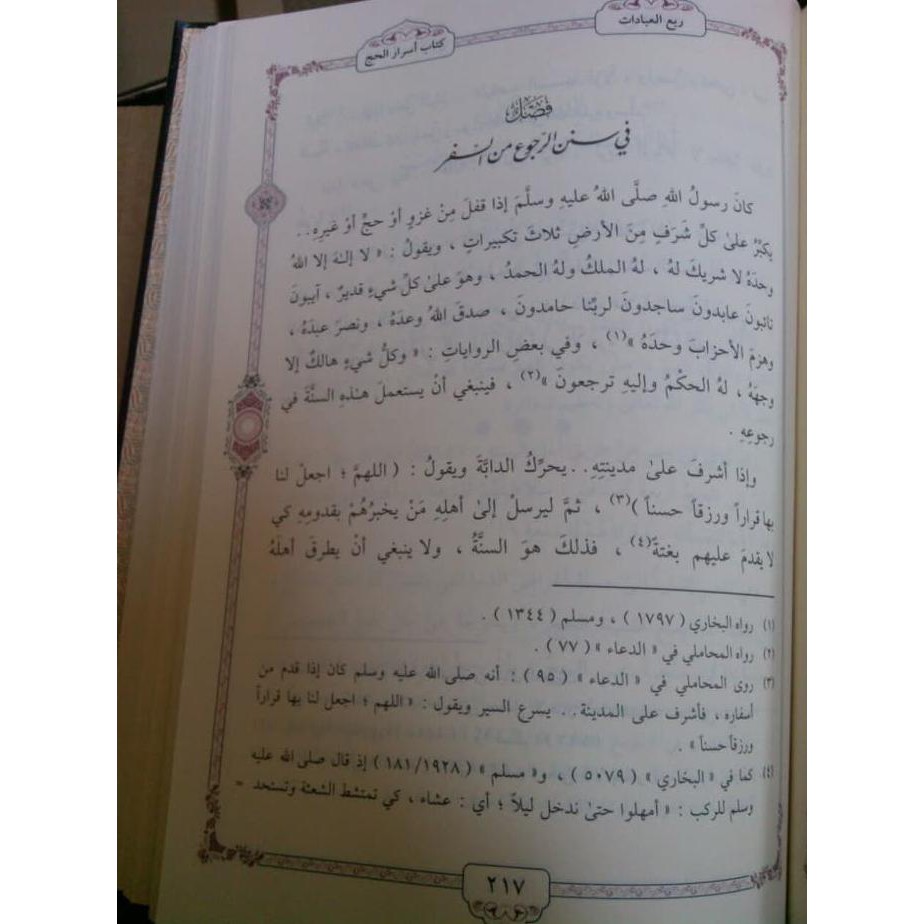 ربع العبادات
كتاب أسرار الحج
فَصْلٌ
في سنن الرجوع من السفر
كانَ رسولُ اللهِ صلَّى اللهُ عليهِ وسلَّمَ إذا قفلَ مِنْ غزوٍ أوْ حجٍّ أوْ غيرِهِ . .
يكبِّرُ علىٰ كلِّ شَرَفٍ مِنَ الأرضِ ثلاثَ تكبيراتٍ ، ويقولُ : « لا إلـٰهَ إلا اللهُ
وحدَهُ لا شريكَ لهُ ، لهُ الملكُ ولهُ الحمدُ ، وهوَ علىٰ كلِّ شيءٍ قديرٌ ، آيبونَ
تائبونَ عابدونَ ساجدونَ لربِّنا حامدونَ ، صدقَ اللهُ وعدَهُ ، ونصرَ عبدَهُ ،
وهزمَ الأحزابَ وحدَهُ »(١) ، وفي بعضِ الرواياتِ : « وكلُّ شيءٍ هالكٌ إلا
وجهَهُ ، لهُ الحكْمُ وإليهِ ترجعونَ »(٢) ، فينبغي أنْ يستعملَ هـٰذهِ السنَّةَ في
رجوعِهِ .
وإذا أشرفَ علىٰ مدينتِهِ . . يحرِّكُ الدابَّةَ ويقولُ : ( اللهمَّ ؛ اجعلْ لنا
بها قراراً ورزقاً حسناً )(٣) ، ثمَّ ليرسلْ إلىٰ أهلِهِ مَنْ يخبرُهُمْ بقدومِهِ كي
لا يقدمَ عليهم بغتةً(٤) ، فذلكَ هوَ السنَّةُ ، ولا ينبغي أنْ يطرقَ أهلَهُ
(١) رواه البخاري ( ١٧٩٧ ) ، ومسلم ( ١٣٤٤ ) .
(٢) رواه المحاملي في « الدعاء » ( ٧٧ ) .
(٣) روى المحاملي في « الدعاء » ( ٩٥ ) : أنه صلى الله عليه وسلم كان إذا قدم من
أسفاره ، فأشرف على المدينة . . يسرع السير ويقول : « اللهم ؛ اجعل لنا بها قراراً
ورزقاً حسناً » .
(٤) كما في « البخاري » ( ٥٠٧٩ ) ، و« مسلم » ( ١٨١/١٩٢٨ ) إذ قال صلى الله عليه
وسلم للركب : « أمهلوا حتىٰ ندخل ليلاً ؛ أي : عشاء ، كي تمتشط الشعثة وتستحد =
٢١٧